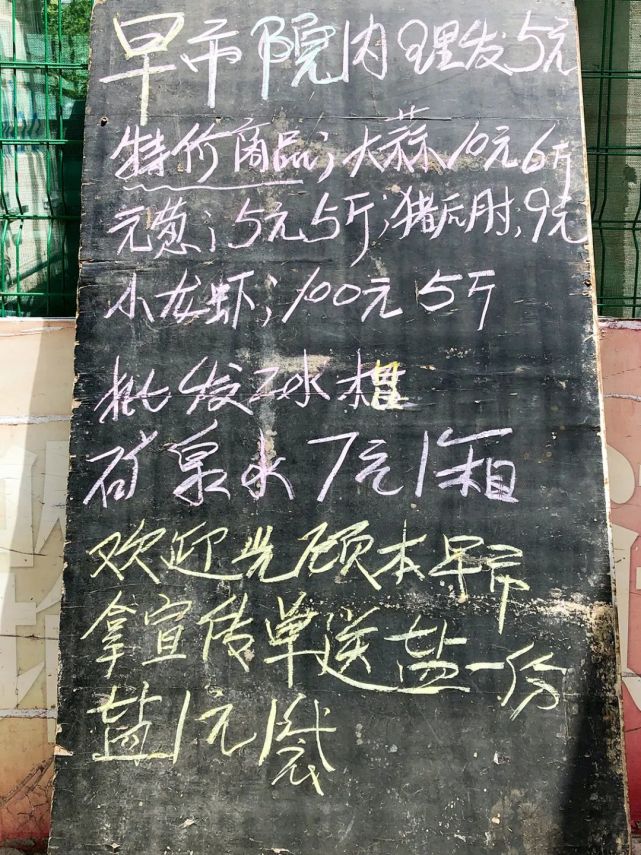 早市院内理发5元
特价商品;大蒜10元6斤
元葱;5元5斤;猪后肘;9元
小龙虾;100元5斤
批发冰棍
矿泉水7元1箱
欢迎光顾本早市
拿宣传单送盐一份
盐1元1袋